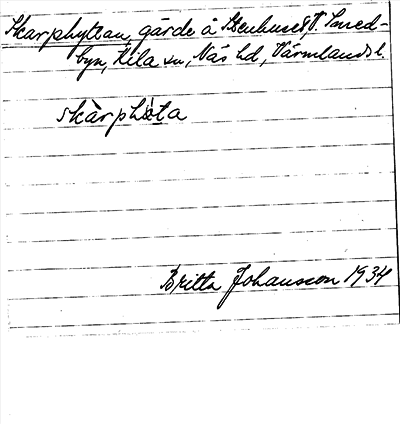 Skarphyttan, gärde å Stenhuset, V. Smed-
byn, Kila sn, Näs hd, Värmlands l.
skàrphìta
Britta Johansson 1934